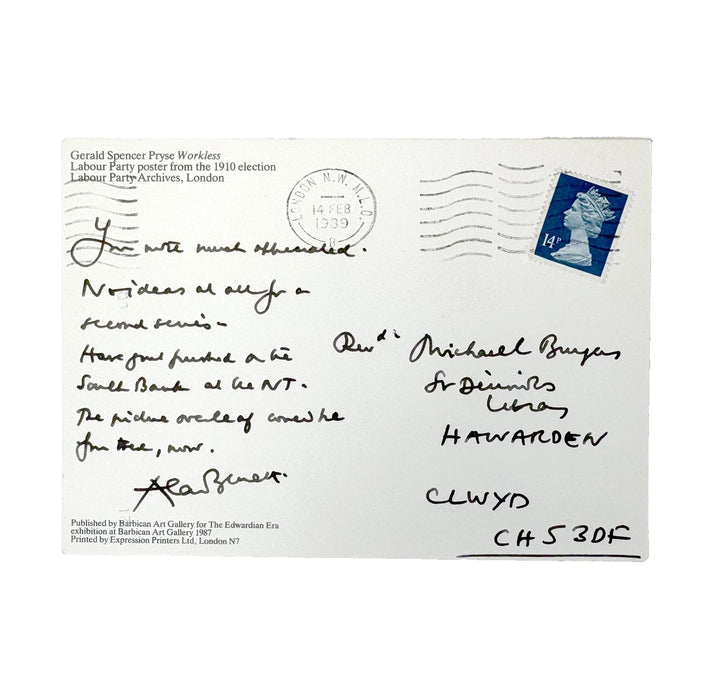 Gerald Spencer Pryse Workless
Labour Party poster from the 1910 election
Labour Party Archives, London
LONDON N.W. M.L.O.
14 FEB
1989
B
14P
Your note much appreciated.
No ideas at all for a
second series –
Have just finished on the
South Bank at the NT.
The picture overleaf could be
for that, now.
Alan Bennett.
Revd. Michael Burgess
St Deiniol's
Library
HAWARDEN
CLWYD
CH5 3DF
Published by Barbican Art Gallery for The Edwardian Era
exhibition at Barbican Art Gallery 1987
Printed by Expression Printers Ltd, London N7